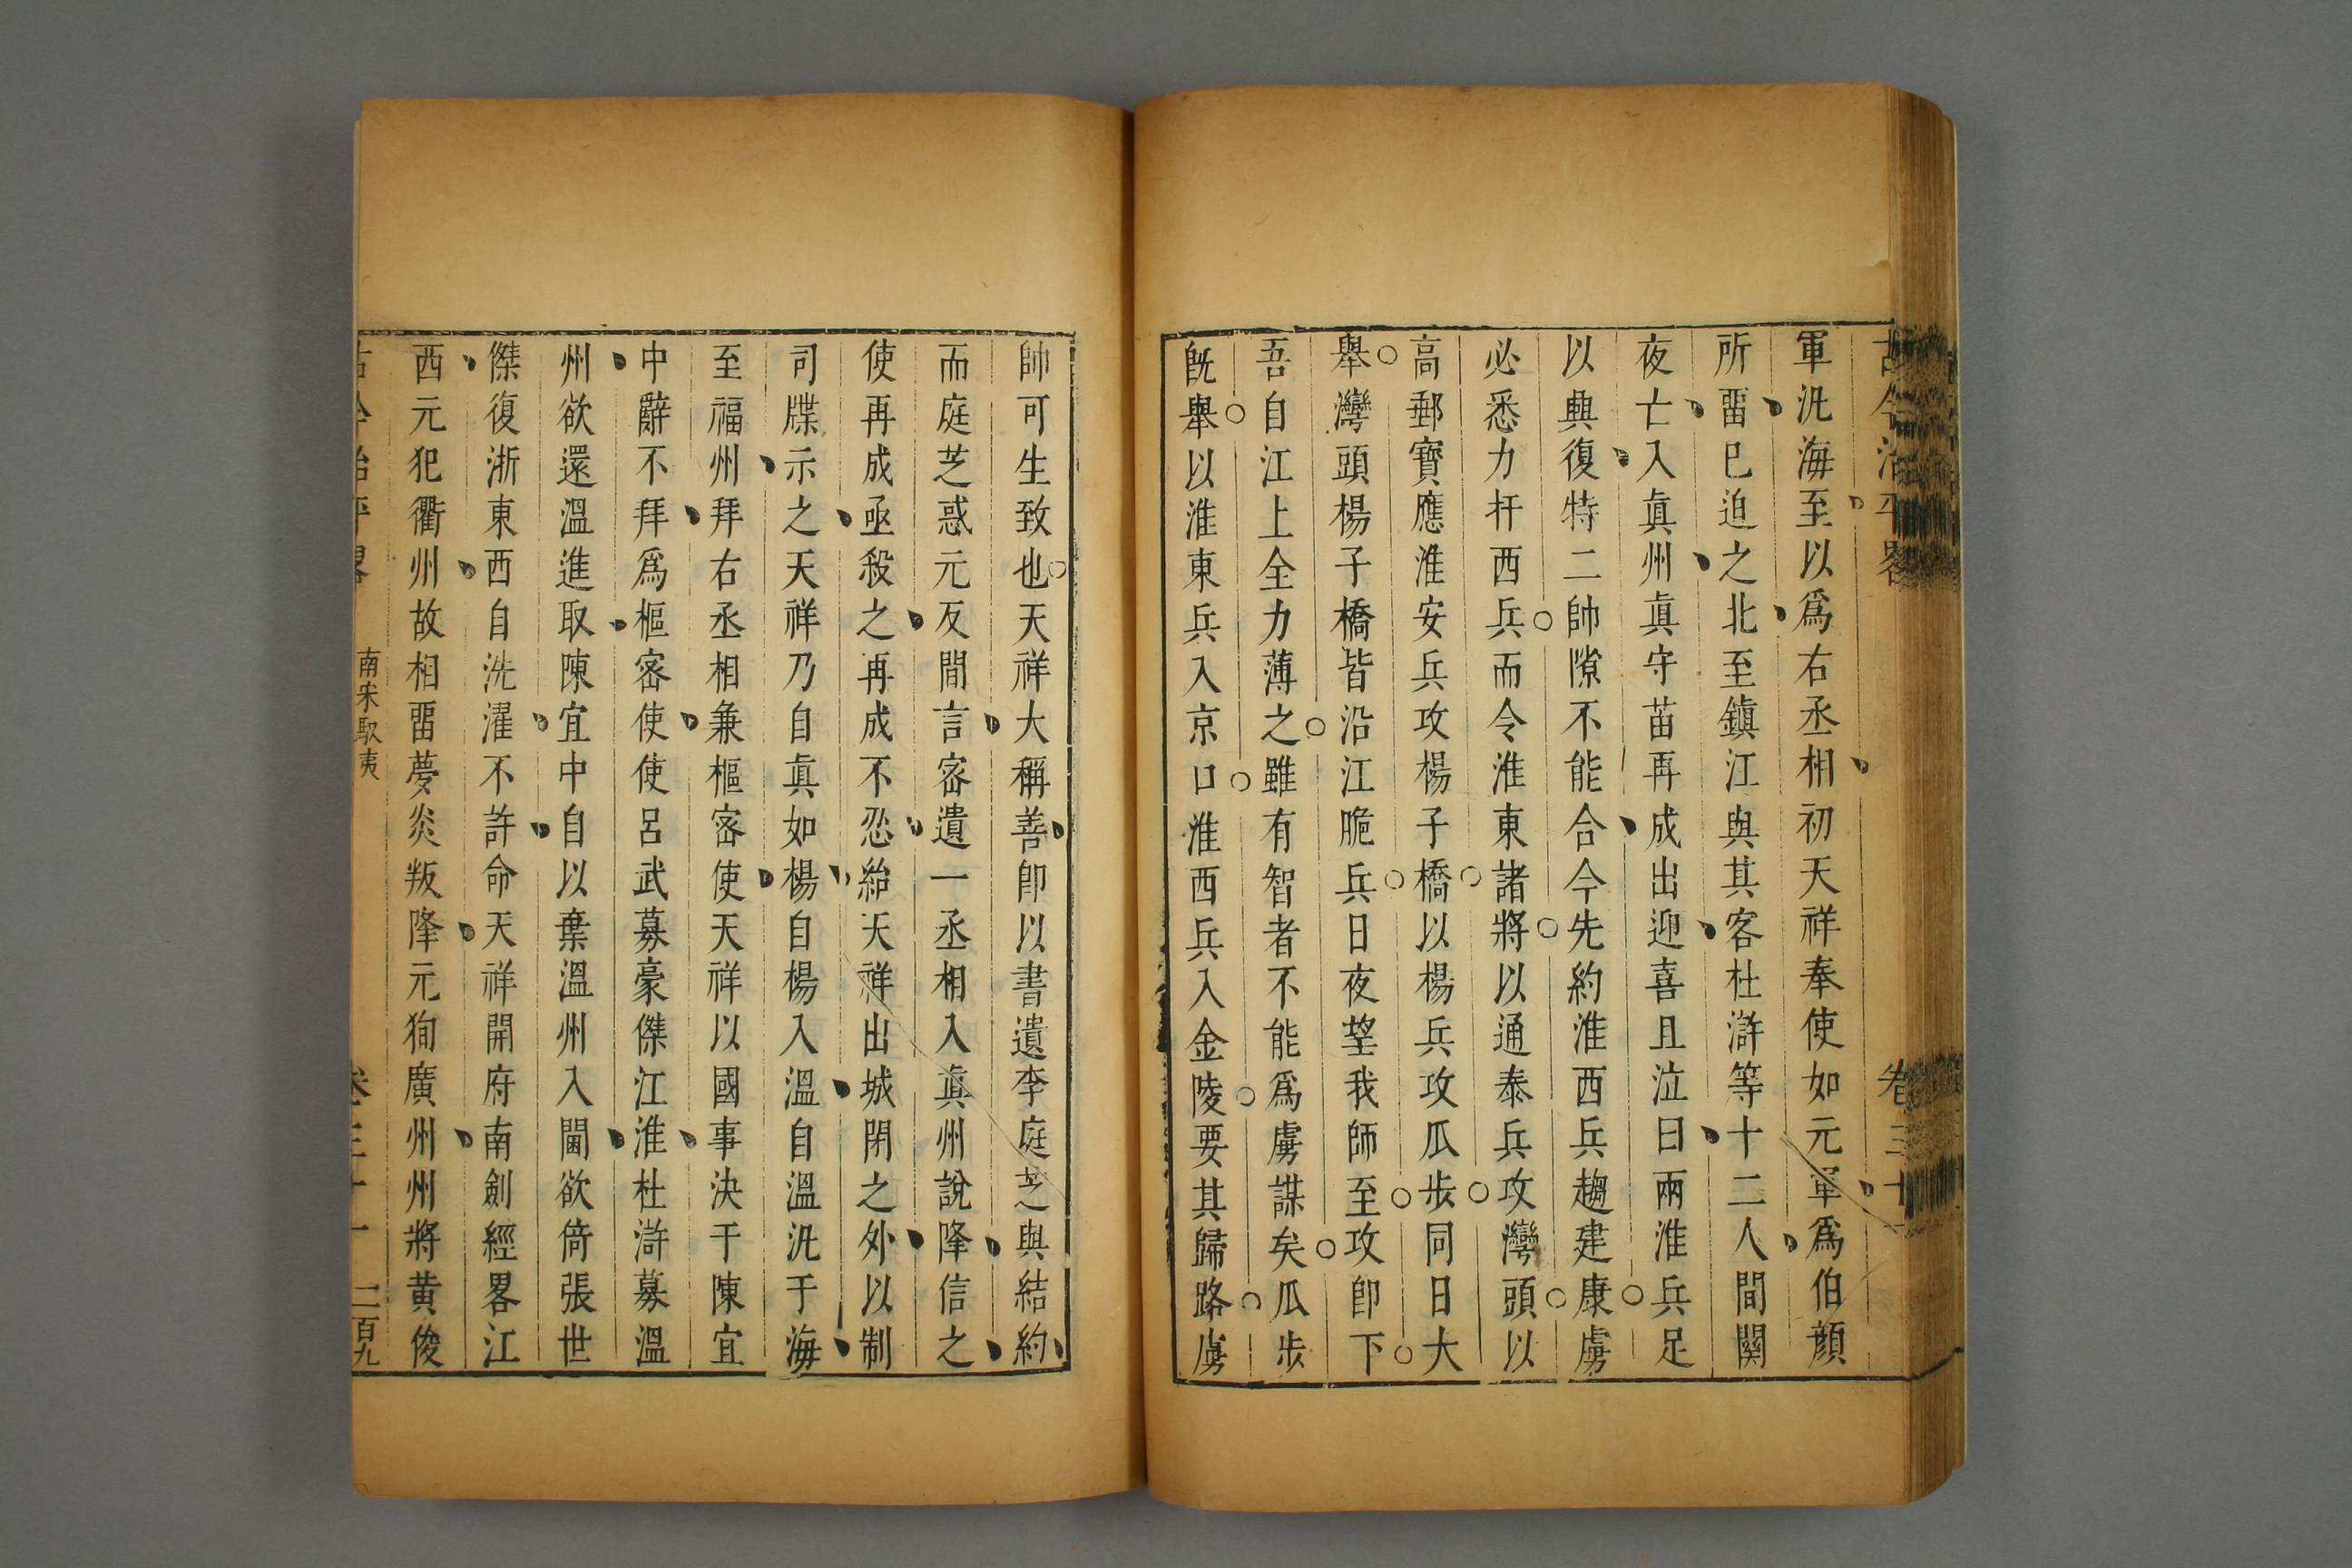 古今治平畧 卷三十
軍汎海至以爲右丞相初天祥奉使如元軍爲伯顔
所畱巳迫之北至鎮江與其客杜滸等十二人間關
夜亡入眞州眞守苗再成出迎喜且泣曰兩淮兵足
以興復特二帥隙不能合今先約淮西兵趨建康虜
必悉力扞西兵而令淮東諸將以通泰兵攻灣頭以
高郵寶應淮安兵攻楊子橋以楊兵攻瓜步同日大
舉灣頭楊子橋皆沿江脆兵日夜望我師至攻卽下
吾自江上全力薄之雖有智者不能爲虜謀矣瓜步
旣舉以淮東兵入京口淮西兵入金陵要其歸路虜
帥可生致也天祥大稱善卽以書遺李庭芝與結約
而庭芝惑元反間言宻遺一丞相入眞州說降信之
使再成亟殺之再成不忍紿天祥出城閉之外以制
司牒示之天祥乃自眞如楊自楊入溫自溫汎于海
至福州拜右丞相兼樞宻使天祥以國事決于陳宜
中辭不拜爲樞宻使使呂武募豪傑江淮杜滸募溫
州欲還溫進取陳宜中自以棄溫州入閩欲倚張世
傑復浙東西自洗濯不許命天祥開府南劍經畧江
西元犯衢州故相畱夢炎叛降元元狥廣州州將黄俊
古今治平畧 南宋馭夷 卷三十一 二百九